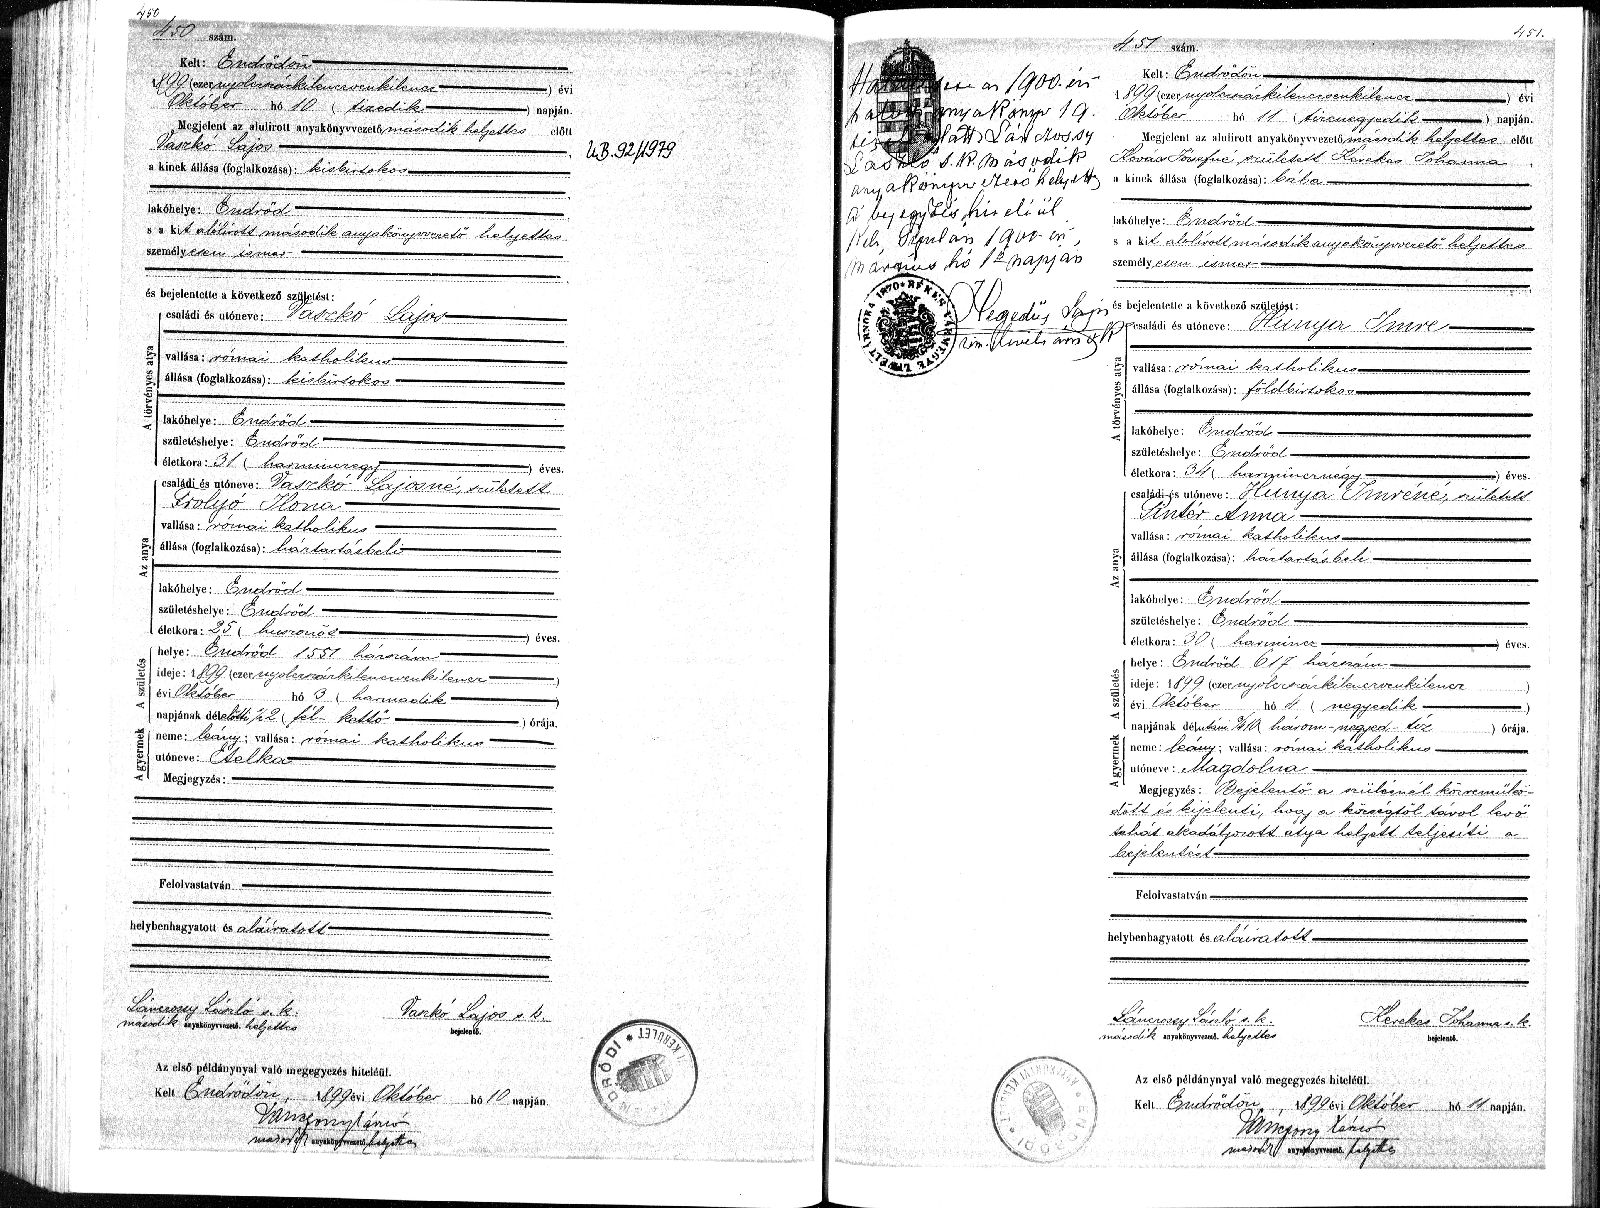 450
450 szám.
Kelt: Endrődön
1899 (ezer nyolczszázkilenczvenkilencz ) évi
Október hó 10 ( tizedik ) napján.
Megjelent az alulirott anyakönyvvezető második helyettes előtt
Vaszkó Lajos
a kinek állása (foglalkozása): kisbirtokos
lakóhelye: Endrőd
s a kit alólirott második anyakönyvvezető helyettes
személyesen ismer
és bejelentette a következő születést:
A törvényes atya
családi és utóneve: Vaszkó Lajos
vallása: római katholikus
állása (foglalkozása): kisbirtokos
lakóhelye: Endrőd
születéshelye: Endrőd
életkora: 31 ( harminczegy ) éves.
Az anya
családi és utóneve: Vaszkó Lajosné, született
Ilona
vallása: római katholikus
állása (foglalkozása): háztartásbeli
lakóhelye: Endrőd
születéshelye: Endrőd
életkora: 25 ( huszonöt ) éves.
A születés
helye: Endrőd 1551 házszám
ideje: 1899 (ezer nyolczszázkilenczvenkilencz )
évi Október hó 3 ( harmadik )
napjának délelőtti 1/2 2 ( fél kettő ) órája.
A gyermek
neme: leány; vallása: római katholikus
utóneve: Etelka
Megjegyzés:
Felolvastatván
helybenhagyatott és aláiratott
Lánczossy László s. k. Vaszkó Lajos s. k.
második anyakönyvvezető. helyettes bejelentő.
Az első példánynyal való megegyezés hiteléül.
Kelt Endrődön, 1899 évi Október hó 10 napján.
második anyakönyvvezető. helyettes
U.B. 92/1979
451.
az 1900. évi
anyakönyv 19.
alatt Lánczossy
László s. k. második
anyakönyvvezető helyettes
bejegyzés hiteléül
Kelt, Gyulán 1900 évi
március hó 1. napján
Hegedűs
1870 * BÉKÉS VÁRMEGYE
451 szám.
Kelt: Endrődön
1899 (ezer nyolczszázkilenczvenkilencz ) évi
Október hó 11 ( tizenegyedik ) napján.
Megjelent az alulirott anyakönyvvezető második helyettes előtt
Kovács Józsefné született Kerekes Johanna
a kinek állása (foglalkozása): bába
lakóhelye: Endrőd
s a kit alólirott második anyakönyvvezető helyettes
személyesen ismer
és bejelentette a következő születést:
A törvényes atya
családi és utóneve: Hunya Imre
vallása: római katholikus
állása (foglalkozása): földbirtokos
lakóhelye: Endrőd
születéshelye: Endrőd
életkora: 34 ( harmincznégy ) éves.
Az anya
családi és utóneve: Hunya Imréné, született
Pintér Anna
vallása: római katholikus
állása (foglalkozása): háztartásbeli
lakóhelye: Endrőd
születéshelye: Endrőd
életkora: 30 ( harmincz ) éves.
A születés
helye: Endrőd 617 házszám
ideje: 1899 (ezer nyolczszázkilenczvenkilencz )
évi Október hó 4 ( negyedik )
napjának délutáni 3/4 10 három-negyed tíz ) órája.
A gyermek
neme: leány; vallása: római katholikus
utóneve: Magdolna
Megjegyzés: Bejelentő a szülésnél közreműkö-
dött és kijelenti, hogy a községtől távol levő
tehát akadályozott atya helyett teljesíti a
bejelentést
Felolvastatván
helybenhagyatott és aláiratott
Lánczossy László s. k. Kerekes Johanna s. k.
második anyakönyvvezető. helyettes bejelentő.
Az első példánynyal való megegyezés hiteléül.
Kelt Endrődön, 1899 évi Október hó 11 napján.
második anyakönyvvezető. helyettes